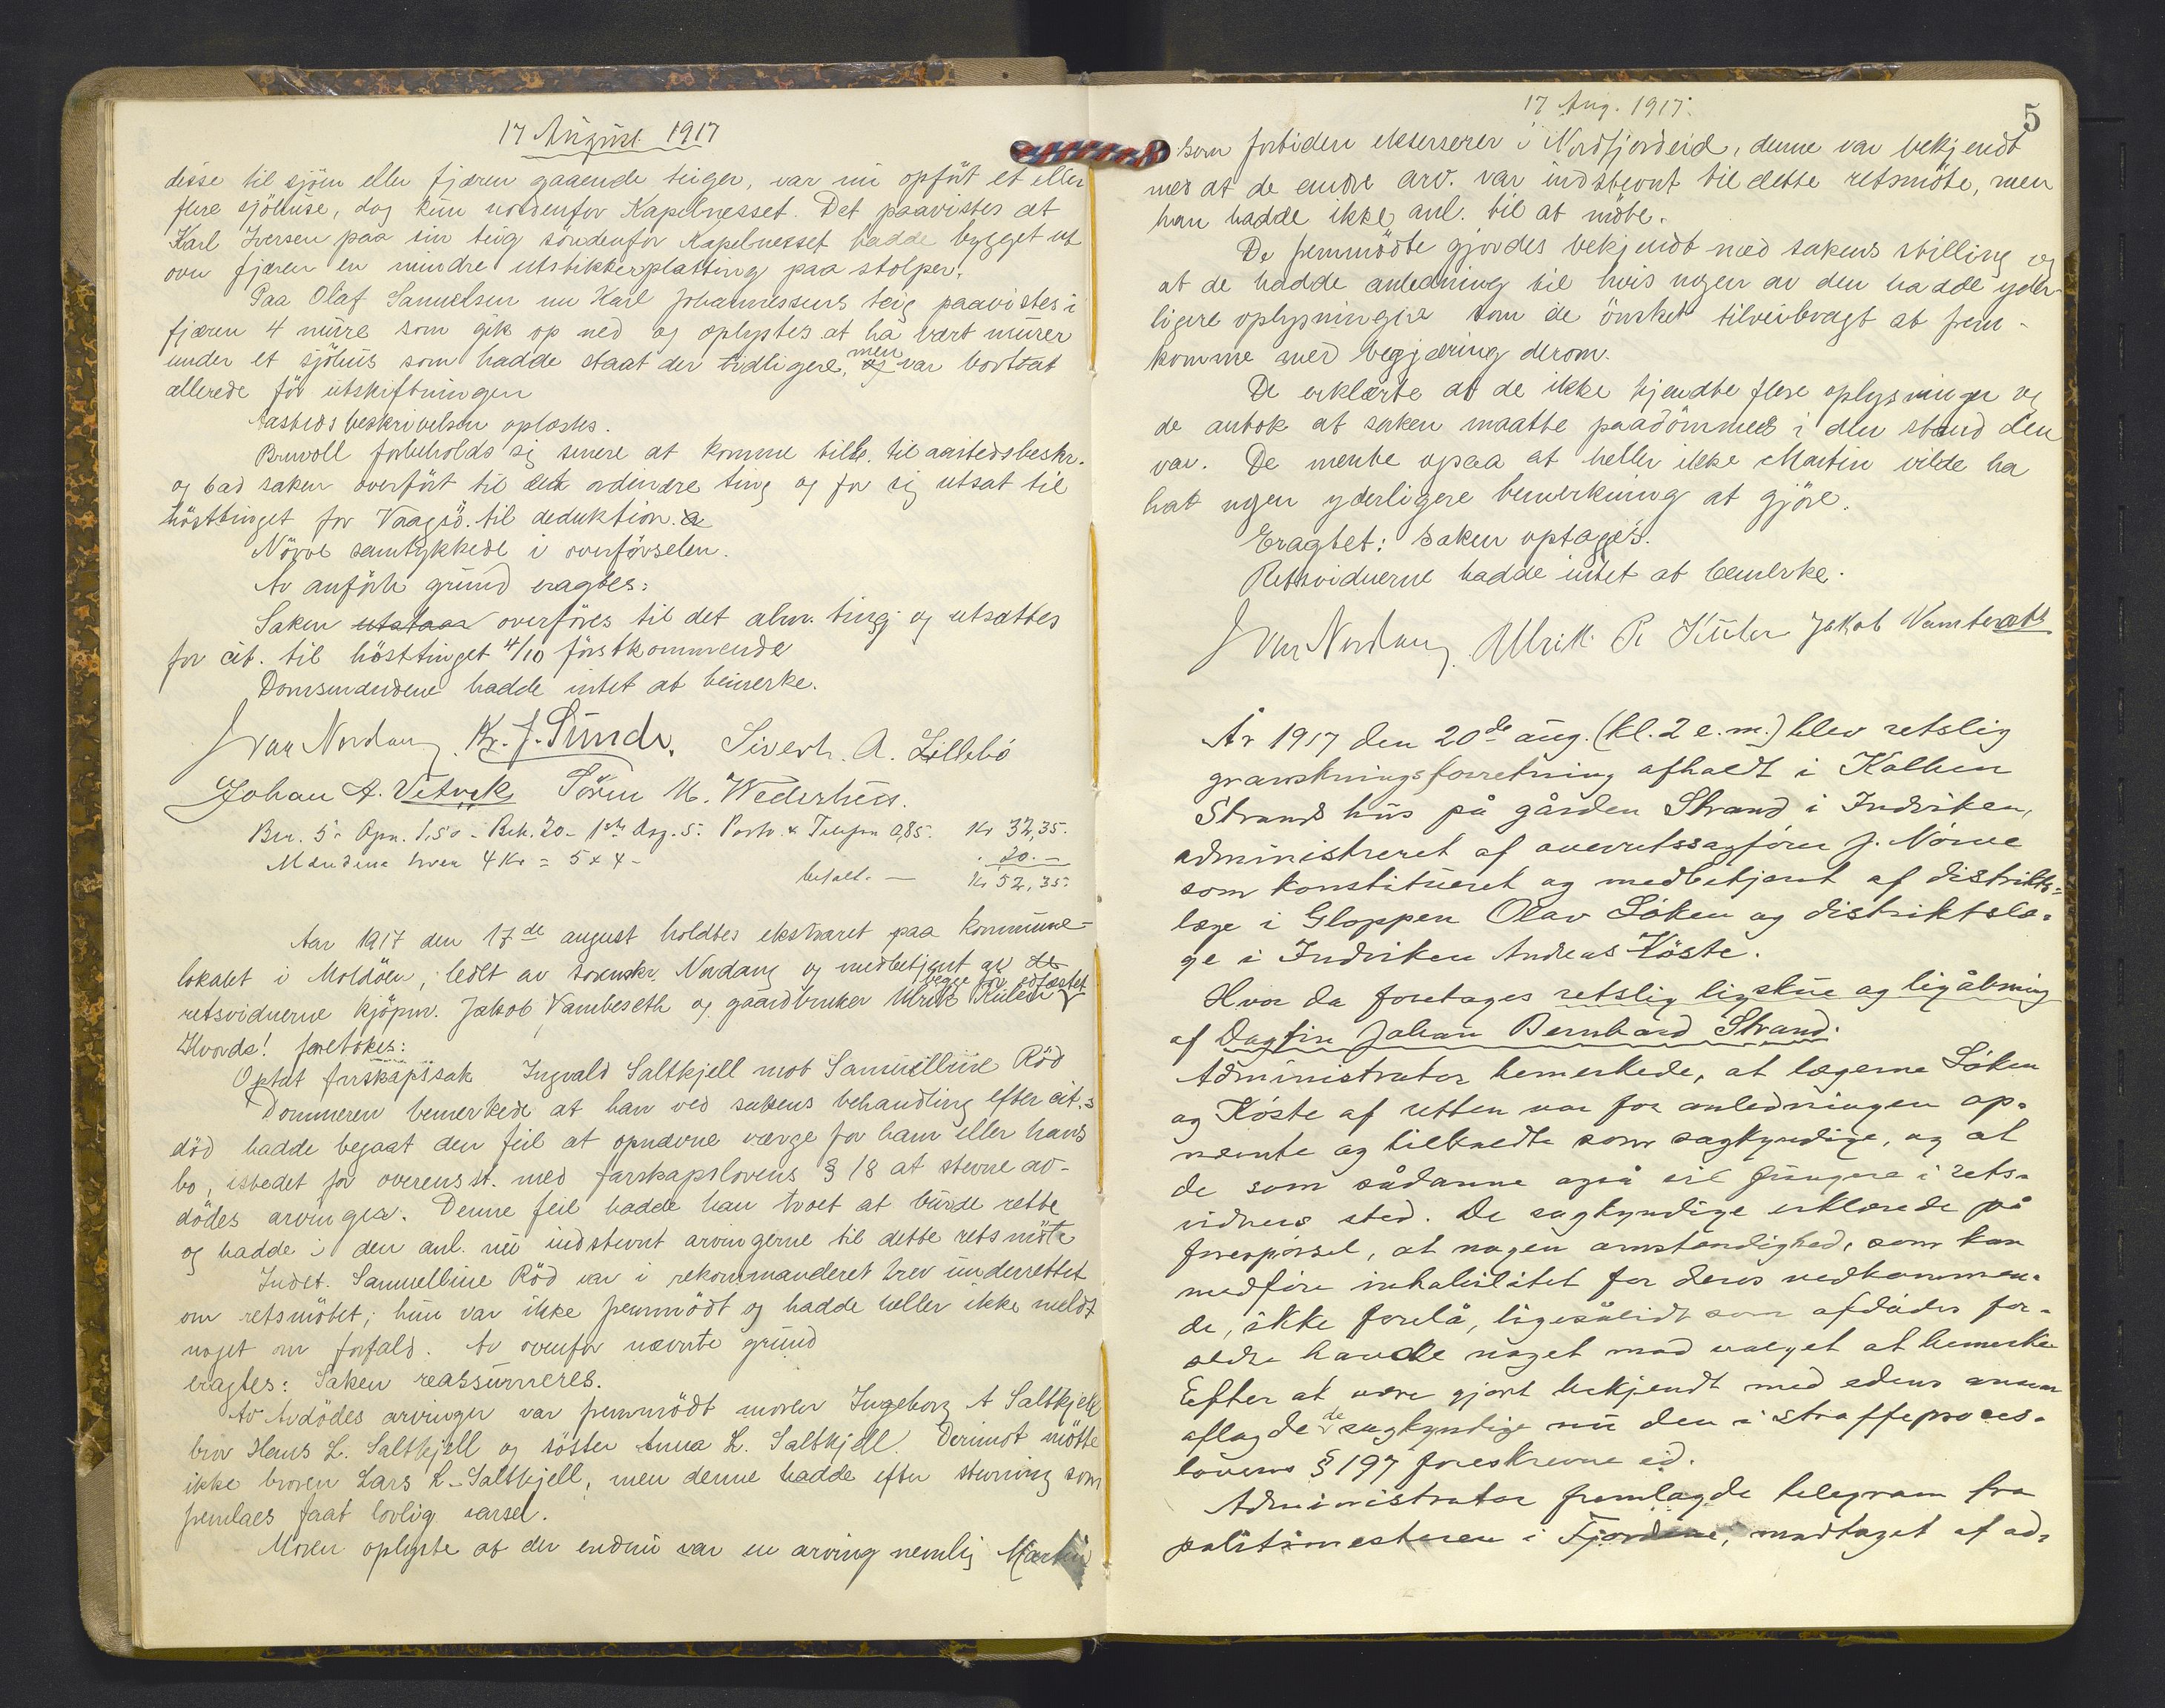 17 August 1917
disse til sjöen eller fjæren gaaende teiger, var nu opfört et eller
flere sjöhuse, dog kun nordenfor Kapelnesset. Det paavistes at
Karl Iversen paa sin teig söndenfor Kapelnesset hadde bygget ut
over fjæren en mindre utstikkerplatting paa stolper.
Paa Olaf Samuelsen nu Karl Johannessens teig paavistes i
fjæren 4 mure som gik op ned og oplystes at ha vært murer
under et sjöhus som hadde staat der tidligere, og men var borttat
allerede för utskiftningen
Aastedsbeskrivelsen oplæstes.
Bruvoll forbeholdt sig senere at komme till. til aastedsbeskr.
og bad saken overfört til det ordinære ting og for sig utsat til
hösttinget for Vaagsö. til deduktion.
Nörve samtykkede i overförselen.
Av anförte grund eragtes:
Saken utstaar overföres til det alm. ting og utsættes
for cit. til hösttinget 4/10 förstkommende
Domsmændene hadde intet at bemerke.
Ivar Nordang. Kr. J. Sunde. Sivert. A. Lillebö
Johan A. Vetvik Sören M. Wederhus.
Ber. 5.- Opn. 1,50 - Rek. 20.- Porto & Telefon 0,85. Kr 32,35.
Mændene hver 4 Kr = 5 x 4 - 20.-
betalt. — Kr 52,35.
Aar 1917 den 17de august holdtes ekstraret paa kommune-
lokalet i Moldöen, ledet av sorenskr. Nordang og medbetjent av de
retsvidnerne kjöpm. Jakob Vambeseth og gaardbruker Ulrik Kulen begge för edfæstet
Hvorda! foretokes:
Optat farskapssak Ingvald Saltkjell mot Samuelline Röd
Dommeren bemerkede at han ved sakens behandling efter cit.s
död hadde begaat den feil at opnævne værge for ham eller hans
bo, istedet for overensst. med farskapslovens § 18 at stevne av-
dödes arvinger. Denne feil hadde han troet at burde rette
og hadde i den anl. nu indstevnt arvingerne til dette retsmöte
Indst. Samuelline Röd var i rekommanderet brev underrettet
om retsmötet; hun var ikke fremmödt og hadde heller ikke meldt
noget om forfald. Av ovenfor nævnte grund
eragtes: Saken reassumeres.
Av Avdödes arvinger var fremmödt moren Ingeborg A Saltkjell
bror Hans L. Saltkjell og söster Anna L. Saltkjell. Derimot mötte
ikke broren Lars L. Saltkjell, men denne hadde efter stevning som
fremlaes faat lovlig varsel.
Moren oplyste at der endnu var en arving nemlig Martin
17 Aug. 1917.
5
som fortiden ekserserer i Nordfjordeid, denne var bekjendt
med at de andre arv. var indstevnt til dette retsmöte, men
han hadde ikke anl. til at möte.
De fremmödte gjordes bekjendt med sakens stilling og
at de hadde anledning til hvis nogen av dem hadde yder-
ligere oplysninger som de önsket tilveiebragt at frem-
komme med begjæring derom.
De erklærte at de ikke kjendte flere oplysninger og
de antok at saken maatte paadömmes i den stand den
var. De mente ogsaa at heller ikke Martin vilde ha
hat nogen yderligere bemerkning at gjöre.
Eragtet: Saken optages.
Retsvidnerne hadde intet at bemerke.
Ivar Nordang. Ulrik R Kulen Jakob Vambeseth
År 1917 den 20de aug. (kl. 2 e.m.) blev retslig
granskningsforretning afholdt i Kolbein
Strands hus på gården Strand i Indviken,
administreret af overretssagförer J. Nörve
som konstitueret og medbetjent af distrikts-
læge i Gloppen Olav Löken og distriktslæ-
ge i Indviken Andreas Köste.
Hvor da foretages retslig ligskue og ligåbning
af Dagfin Johan Bernhard Strand.
Administrator bemerkede, at lægerne Löken
og Köste af retten var for anledningen op-
nævnte og tilkaldte som sagkyndige, og at
de som sådanne også vil fungere i rets-
vidners sted. De sagkyndige erklærede på
forespörsel, at nogen omstændighed, som kan
medföre inhabilitet for deres vedkommen-
de, ikke forelå, ligesålidt som afdödes for-
ældre havde noget mod valget at bemerke
Efter at være gjort bekjendt med edens ansvar
aflagde de sagkyndige nu den i straffeproces-
lovens § 197 foreskrevne ed.
Administrator fremlagde telegram fra
politimesteren i Fjordene, modtaget af ad-